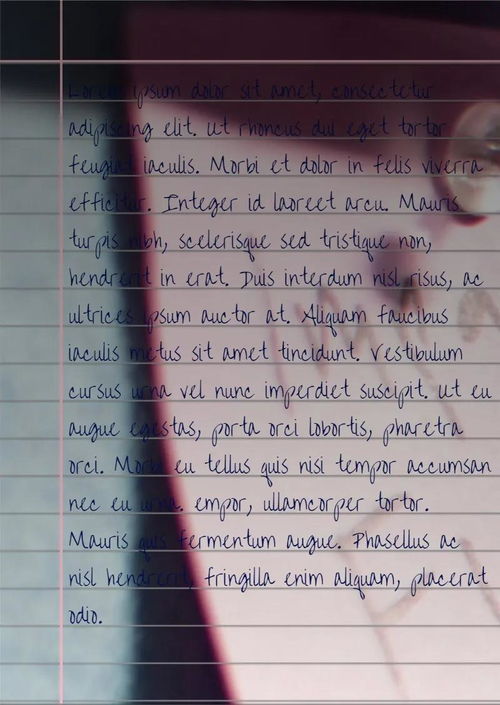 Lorem ipsum dolor sit amet, consectetur
adipiscing elit. Ut rhoncus dui eget tortor
feugiat iaculis. Morbi et dolor in felis viverra
efficitur. Integer id laoreet arcu. Mauris
turpis nibh, scelerisque sed tristique non,
hendrerit in erat. Duis interdum nisl risus, ac
ultrices ipsum auctor at. Aliquam faucibus
iaculis metus sit amet tincidunt. Vestibulum
cursus urna vel nunc imperdiet suscipit. Ut eu
augue egestas, porta orci lobortis, pharetra
orci. Morbi eu tellus quis nisi tempor accumsan
nec eu urna. empor, ullamcorper tortor.
Mauris quis fermentum augue. Phasellus ac
nisl hendrerit, fringilla enim aliquam, placerat
odio.